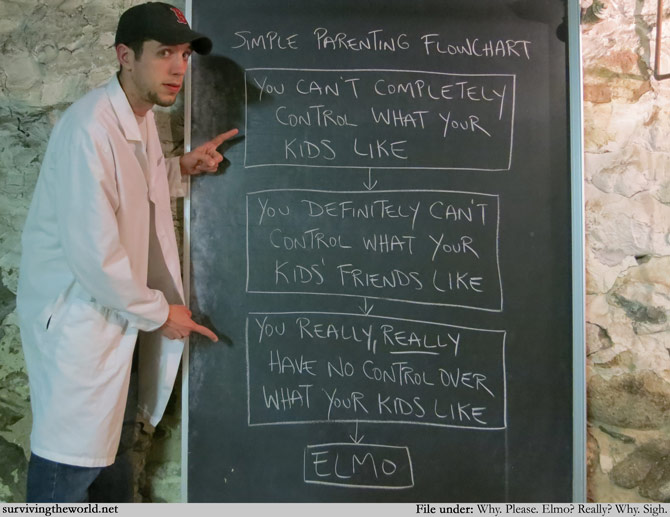 SIMPLE PARENTING FLOWCHART
YOU CAN'T COMPLETELY
CONTROL WHAT YOUR
KIDS LIKE
YOU DEFINITELY CAN'T
CONTROL WHAT YOUR
KIDS' FRIENDS LIKE
YOU REALLY, REALLY
HAVE NO CONTROL OVER
WHAT YOUR KIDS LIKE
ELMO
survivingtheworld.net
File under: Why. Please. Elmo? Really? Why. Sigh.